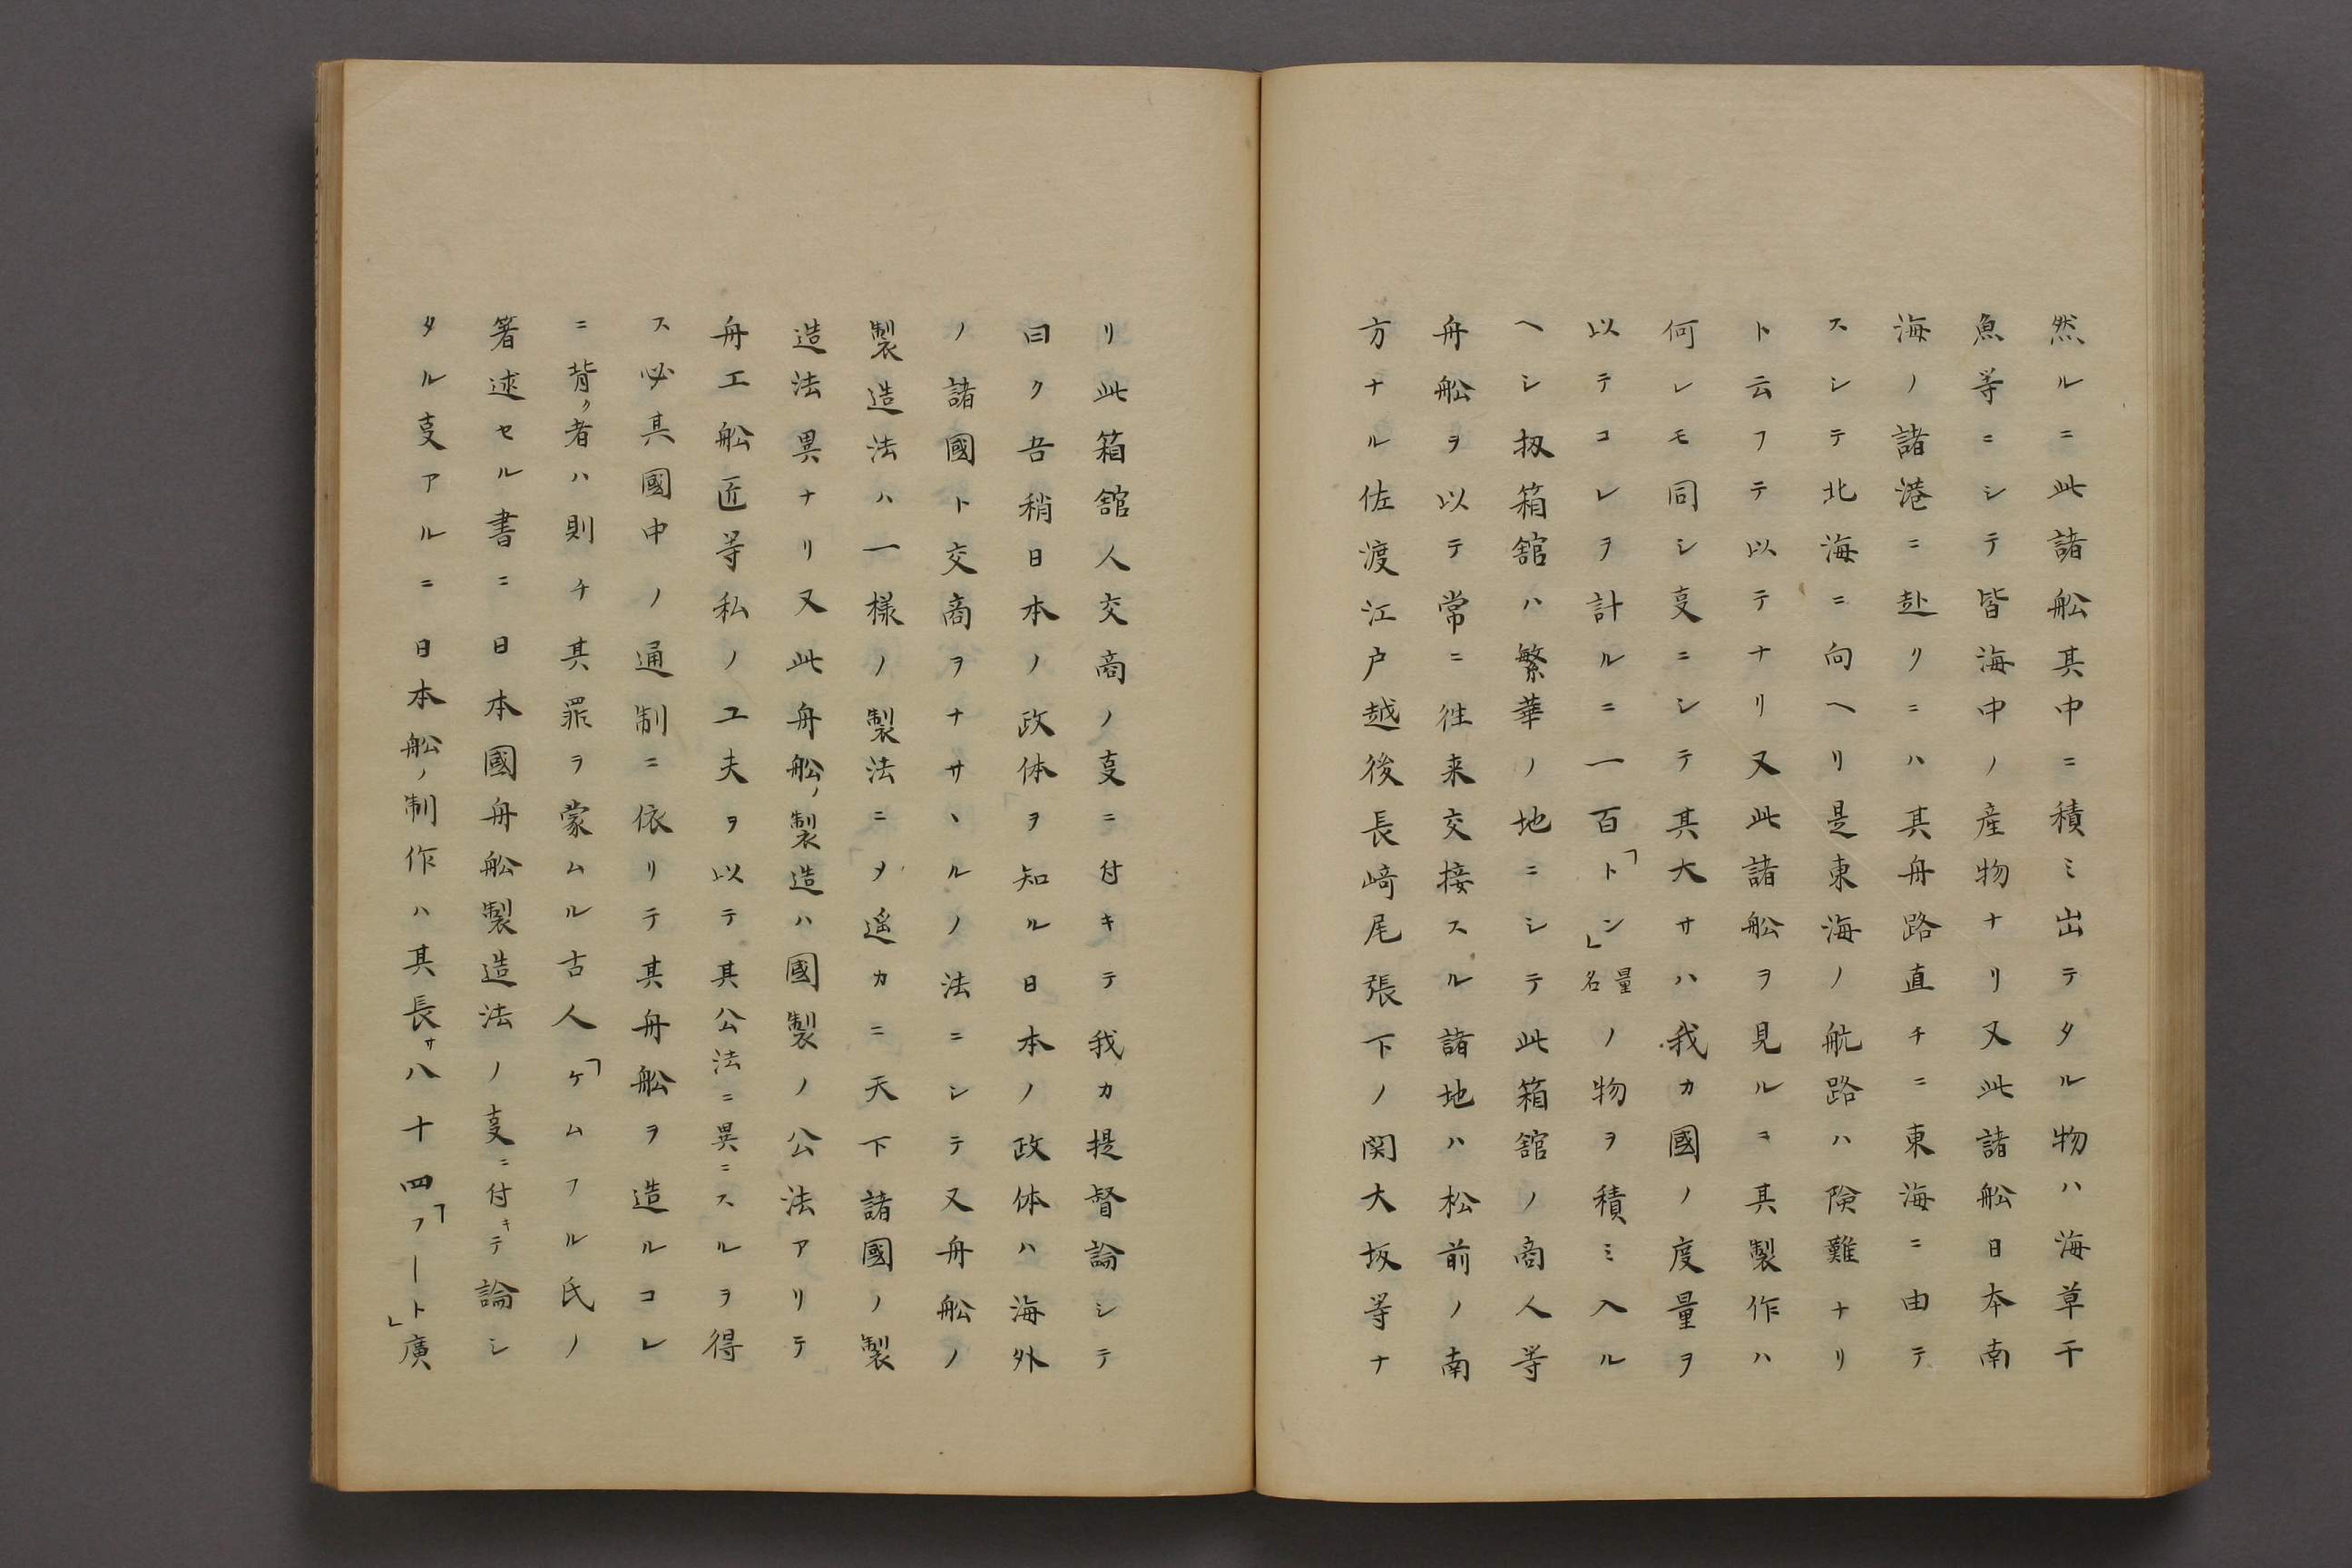 然ルニ此諸舩其中ニ積ミ出テタル物ハ海草干
魚等ニシテ皆海中ノ産物ナリ又此諸舩日本南
海ノ諸港ニ赴リニハ其舟路直チニ東海ニ由テ
スシテ北海ニ向ヘリ是東海ノ航路ハ険難ナリ
ト云フテ以テナリ又此諸舩ヲ見ルヿ其製作ハ
何レモ同シ㕝ニシテ其大サハ我カ國ノ度量ヲ
以テコレヲ計ルニ一百「トン」量名ノ物ヲ積ミ入ル
ヘシ扨箱舘ハ繁華ノ地ニシテ此箱舘ノ商人等
舟舩ヲ以テ常ニ徃来交接スル諸地ハ松前ノ南
方ナル佐渡江戸越後長﨑尾張下ノ関大坂等ナ
リ此箱舘人交商ノ㕝ニ付キテ我カ提督論シテ
曰ク吾稍日本ノ政体ヲ知ル日本ノ政体ハ海外
ノ諸國ト交商ヲナサヽルノ法ニシテ又舟舩ノ
製造法ハ一様ノ製法ニメ遥カニ天下諸國ノ製
造法異ナリ又此舟舩ノ製造ハ國製ノ公法アリテ
舟工舩匠等私ノ工夫ヲ以テ其公法ニ異ニスルヲ得
ス必其國中ノ通制ニ依リテ其舟舩ヲ造ルコレ
ニ背ク者ハ則チ其罪ヲ蒙ムル古人「ケムフル氏ノ
著述セル書ニ日本國舟舩製造法ノ㕝ニ付キテ論シ
タル㕝アルニ日本舩ノ制作ハ其長サ八十四「フート」廣